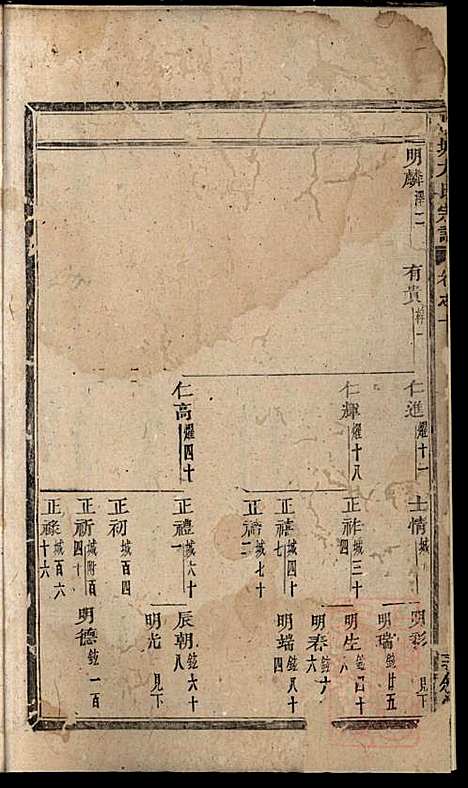 氏宗譜
明麟
有貴
仁進 耀十一
仁輝 耀十八
仁高 耀四十
士情 城
正祚 城三十四
正禧 城四十七
城七十二
正禮 城六十一
正初 城百四
正祈 城附百四十
正祿 城百六十六
明彩 見下
明瑞 鉉廿五
明生
明春
明端 鉉八十四
辰朝 鉉六十八
明光 見下
明德 鉉一百